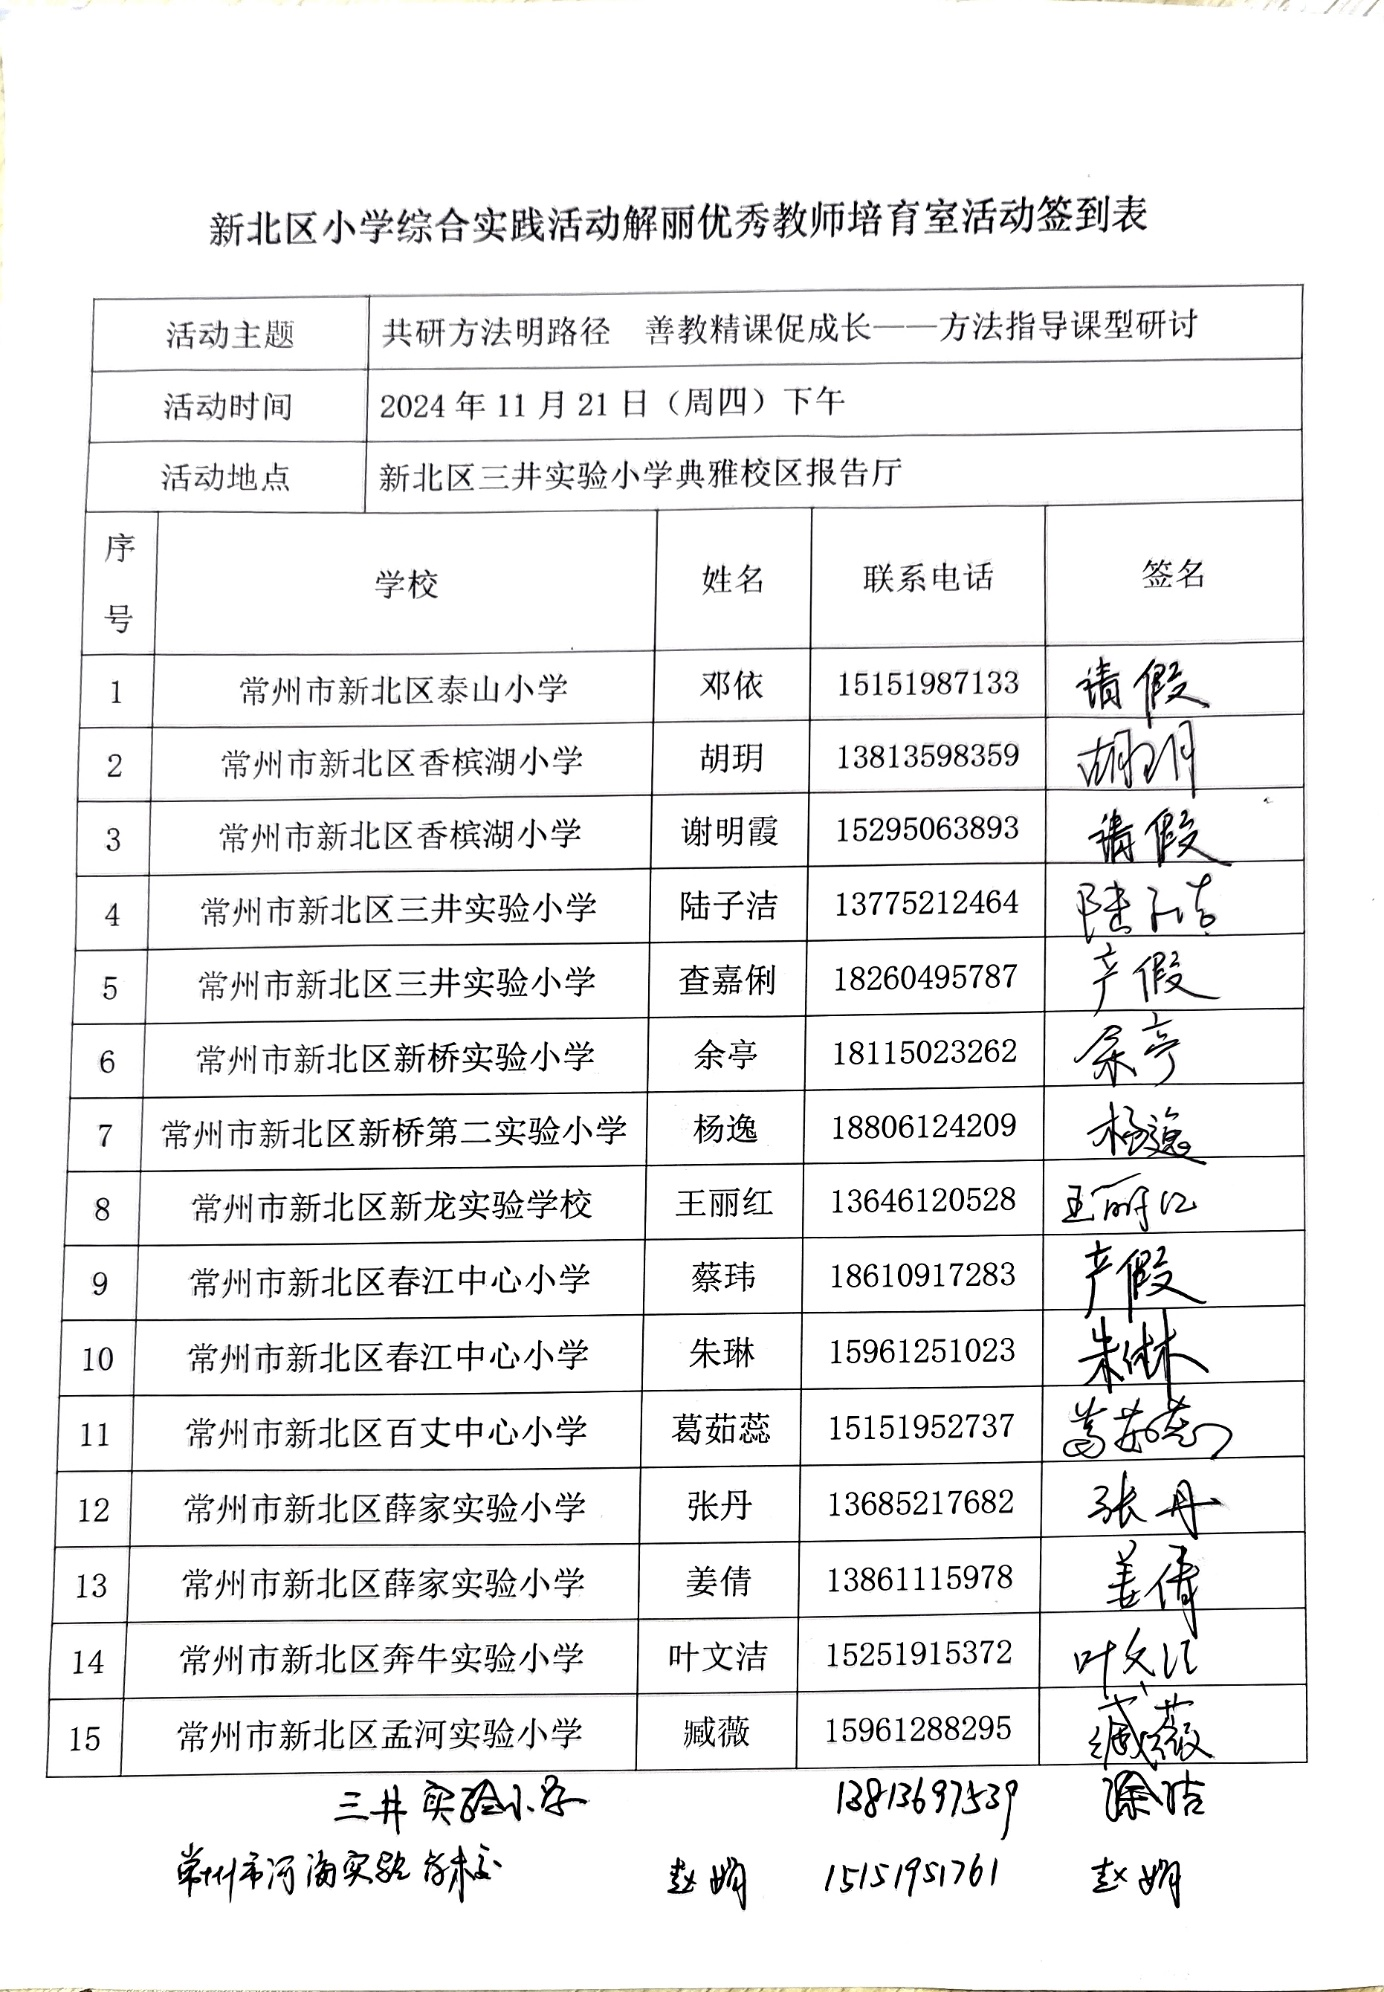 新北区小学综合实践活动解丽优秀教师培育室活动签到表
活动主题 共研方法明路径 善教精课促成长——方法指导课型研讨
活动时间 2024 年 11 月 21 日（周四）下午
活动地点 新北区三井实验小学典雅校区报告厅
序号 学校 姓名 联系电话 签名
1 常州市新北区泰山小学 邓依 15151987133 请假
2 常州市新北区香槟湖小学 胡玥 13813598359 胡玥
3 常州市新北区香槟湖小学 谢明霞 15295063893 请假
4 常州市新北区三井实验小学 陆子洁 13775212464 陆子洁
5 常州市新北区三井实验小学 查嘉俐 18260495787 产假
6 常州市新北区新桥实验小学 余亭 18115023262 余亭
7 常州市新北区新桥第二实验小学 杨逸 18806124209 杨逸
8 常州市新北区新龙实验学校 王丽红 13646120528 王丽红
9 常州市新北区春江中心小学 蔡玮 18610917283 产假
10 常州市新北区春江中心小学 朱琳 15961251023 朱琳
11 常州市新北区百丈中心小学 葛茹蕊 15151952737 葛茹蕊
12 常州市新北区薛家实验小学 张丹 13685217682 张丹
13 常州市新北区薛家实验小学 姜倩 13861115978 姜倩
14 常州市新北区奔牛实验小学 叶文洁 15251915372 叶文洁
15 常州市新北区孟河实验小学 臧薇 15961288295 臧薇
三井实验小学 13813697539
常州市河海实验学校 赵娟 15151951761 赵娟